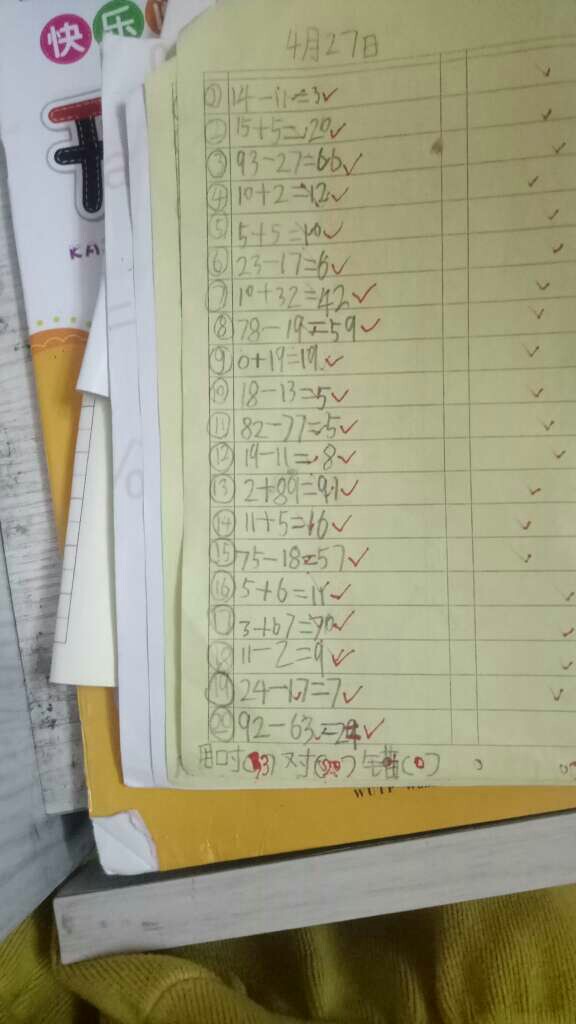 快乐
4月27日
① 14-11=3✓
② 15+5=20✓
③ 93-27=66✓
④ 10+2=12✓
⑤ 5+5=10✓
⑥ 23-17=6✓
⑦ 10+32=42✓
⑧ 78-19=59✓
⑨ 0+19=19✓
⑩ 18-13=5✓
⑪ 82-77=5✓
⑫ 19-11=8✓
⑬ 2+89=91✓
⑭ 11+5=16✓
⑮ 75-18=57✓
⑯ 5+6=11✓
3+67=70✓
⑱ 11-2=9✓
⑲ 24-17=7✓
⑳ 92-63=29✓
用时( ) 对( ) 错(0)